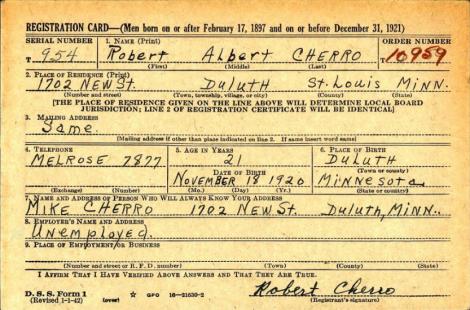 REGISTRATION CARD—(Men born on or after February 17, 1897 and on or before December 31, 1921)
SERIAL NUMBER 1. NAME (Print) ORDER NUMBER
T 954 Robert Albert CHERRO T 10959
(First) (Middle) (Last)
2. PLACE OF RESIDENCE (Print)
1702 NEW St. DULUTH St. Louis MINN.
(Number and street) (Town, township, village, or city) (County) (State)
[THE PLACE OF RESIDENCE GIVEN ON THE LINE ABOVE WILL DETERMINE LOCAL BOARD
JURISDICTION; LINE 2 OF REGISTRATION CERTIFICATE WILL BE IDENTICAL]
3. MAILING ADDRESS
Same.
[Mailing address if other than place indicated on line 2. If same insert word same]
4. TELEPHONE 5. AGE IN YEARS 6. PLACE OF BIRTH
MELROSE 7877 21 DULUTH
DATE OF BIRTH (Town or county)
NOVEMBER 18 1920 Minnesota
(Exchange) (Number) (Mo.) (Day) (Yr.) (State or country)
7. NAME AND ADDRESS OF PERSON WHO WILL ALWAYS KNOW YOUR ADDRESS
MIKE CHERRO 1702 NEW St. Duluth, MINN.
8. EMPLOYER'S NAME AND ADDRESS
Unemployed.
9. PLACE OF EMPLOYMENT OR BUSINESS
(Number and street or R. F. D. number) (Town) (County) (State)
I AFFIRM THAT I HAVE VERIFIED ABOVE ANSWERS AND THAT THEY ARE TRUE.
D. S. S. Form 1
(Revised 1-1-42) (over) ☆ GPO 16—21630-2 Robert Cherro
(Registrant's signature)